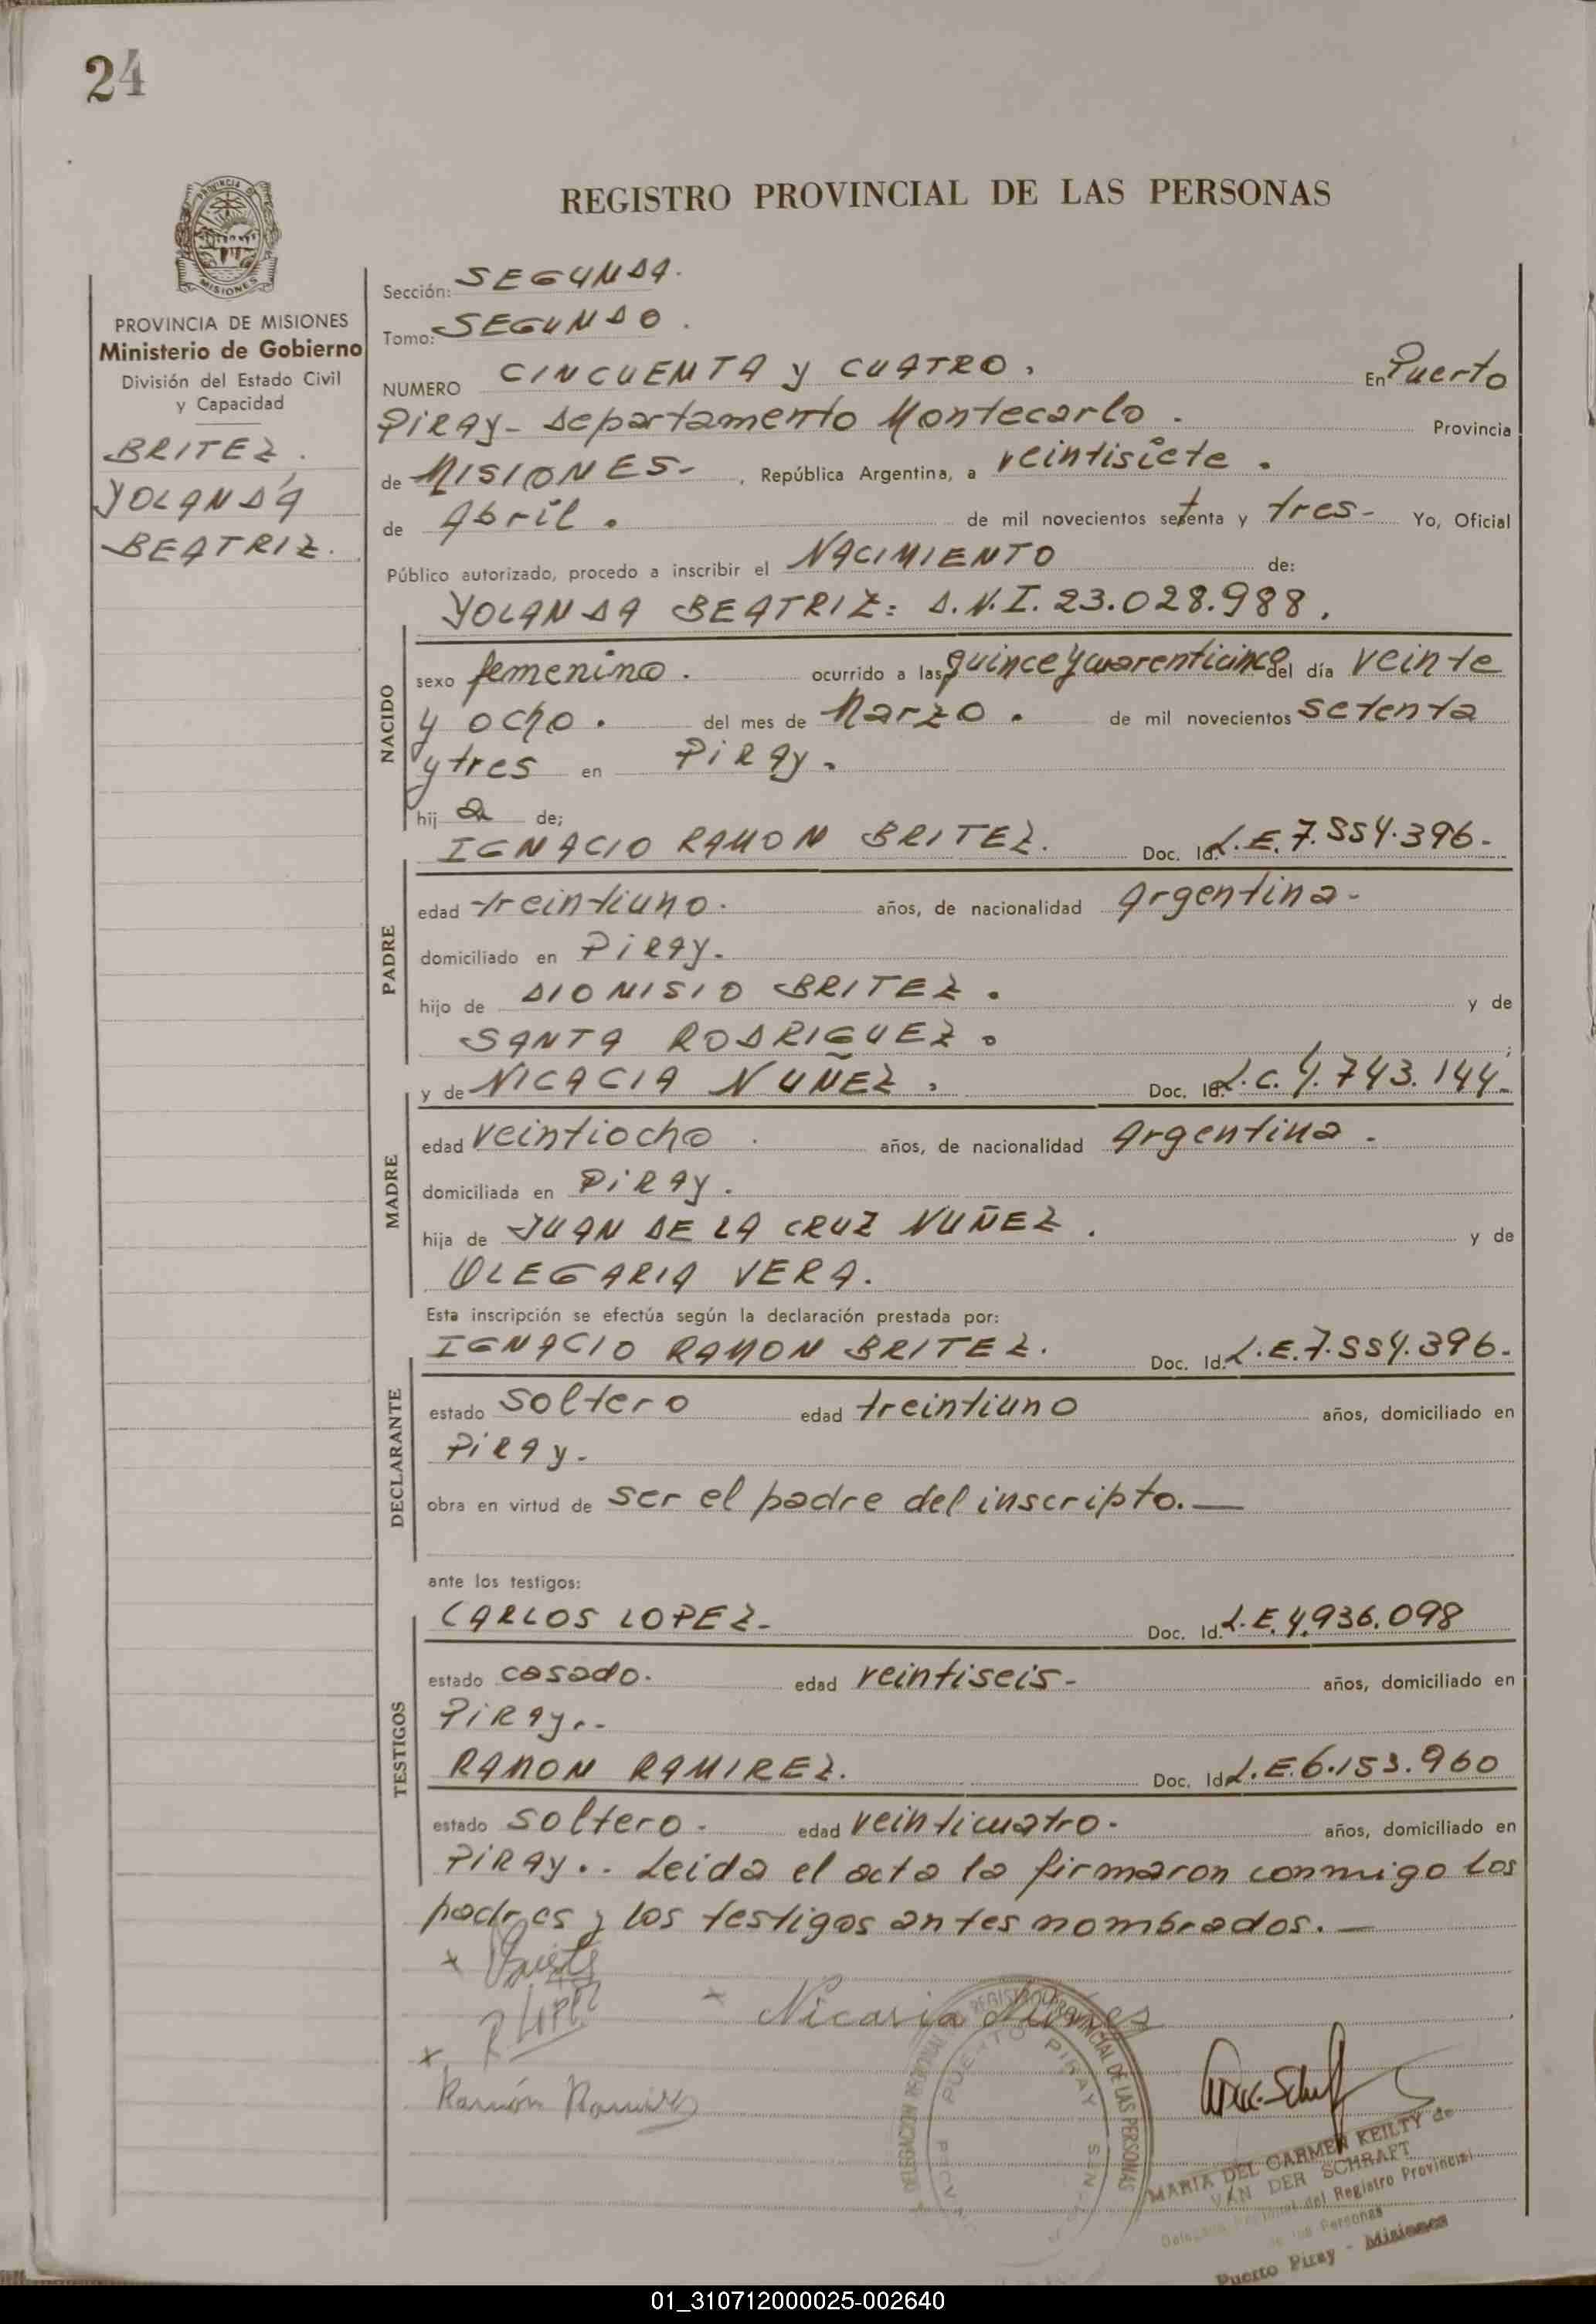 24
REGISTRO PROVINCIAL DE LAS PERSONAS
PROVINCIA DE MISIONES
Ministerio de Gobierno
División del Estado Civil
y Capacidad
BRITEZ.
YOLANDA
BEATRIZ.
Sección: SEGUNDA.
Tomo: SEGUNDO.
NUMERO CINCUENTA y CUATRO. En Puerto
PIRAY- Departamento Montecarlo. Provincia
de MISIONES-, República Argentina, a veintisiete.
de Abril. de mil novecientos setenta y tres- Yo, Oficial
Público autorizado, procedo a inscribir el NACIMIENTO de:
YOLANDA BEATRIZ: D.N.I. 23.028.988.
NACIDO
sexo femenino. ocurrido a las quince y cuarenticinco del día veinte
y ocho. del mes de Marzo. de mil novecientos setenta
y tres en PIRAy.
hij a de;
IGNACIO RAMON BRITEZ. Doc. Id. L.E. 7.554.396-
PADRE
edad treintiuno. años, de nacionalidad Argentina-
domiciliado en PiRAy.
hijo de DIONISIO BRITEZ. y de
SANTA RODRIGUEZ.
MADRE
y de NICACIA NUÑEZ. Doc. Id. L.C. 4.743.144-
edad veintiocho. años, de nacionalidad Argentina.
domiciliada en PiRAy.
hija de JUAN DE LA CRUZ NUÑEZ. y de
OLEGARIA VERA.
Esta inscripción se efectúa según la declaración prestada por:
IGNACIO RAMON BRITEZ. Doc. Id. L.E. 7.554.396-
DECLARANTE
estado soltero edad treintiuno años, domiciliado en
PiRAy.
obra en virtud de ser el padre del inscripto.—
ante los testigos:
TESTIGOS
CARLOS LOPEZ- Doc. Id. L.E. 4.936.098
estado casado. edad veintiseis- años, domiciliado en
PiRAy.-
RAMON RAMIREZ. Doc. Id. L.E. 6.153.960
estado soltero- edad veinticuatro- años, domiciliado en
PiRAy.. Leida el acta la firmaron conmigo los
padres y los testigos antes nombrados.—
LOPEZ
Nicasia Nuñes
Ramón Ramirez
DELEGACION REGISTRO PROVINCIAL DE LAS PERSONAS
PUERTO PIRAY
MARIA DEL CARMEN KEILTY de
VAN DER SCHRAFT
del Registro Provincial
de las Personas
Puerto Piray - Misiones
01_310712000025-002640